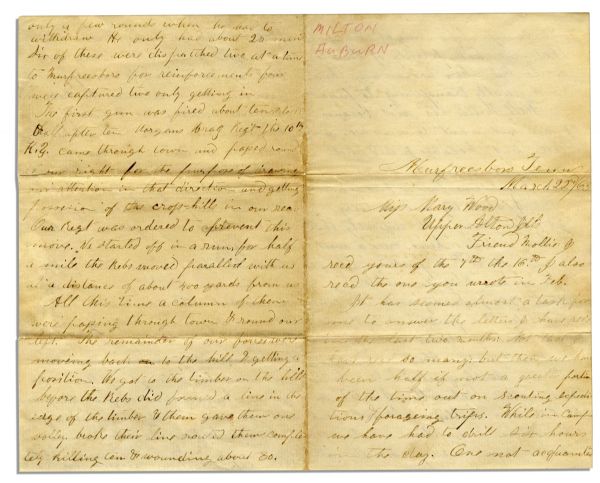 only a few rounds when he had to
withdraw He only had about 20 men
Six of these were dispatched two at a time
to Murfreesboro for reinforcements four
were captured two only getting in
The first gun was fired about ten
after ten Morgans Regt the 10th
Ky. came through town and passed round
our right for the purpose of drawing
our attention in that direction and getting
possession of the hill in our rear
Our Regt was ordered to prevent this
move. We started off in a run, for half
a mile the Rebs moved parallel with us
at a distance of about 400 yards from us
All this time a column of them
were passing through town & round our
left. The remainder of our force were
moving back to the hill & getting a
position. We got to the timber on the hill
before the Rebs did formed a line in the
edge of the timber & then gave them one
volley, broke their line routed them comple
tely killing ten & wounding about 30.
MILTON
AUBURN
Murfreesboro Tenn
March
Miss Mary Wood
Upper Alton Ills
Friend Mollie I
recd yours of the 7th the 16th I also
recd the one you wrote in Feb.
It has seemed almost a task for
me to answer the letters I have
the last two months.
so many, but then we have
been half if not a great portion
of the time out on scouting expedi
tions foraging trips. While in camp
we have had to drill six hours
in the day. One not acquainted